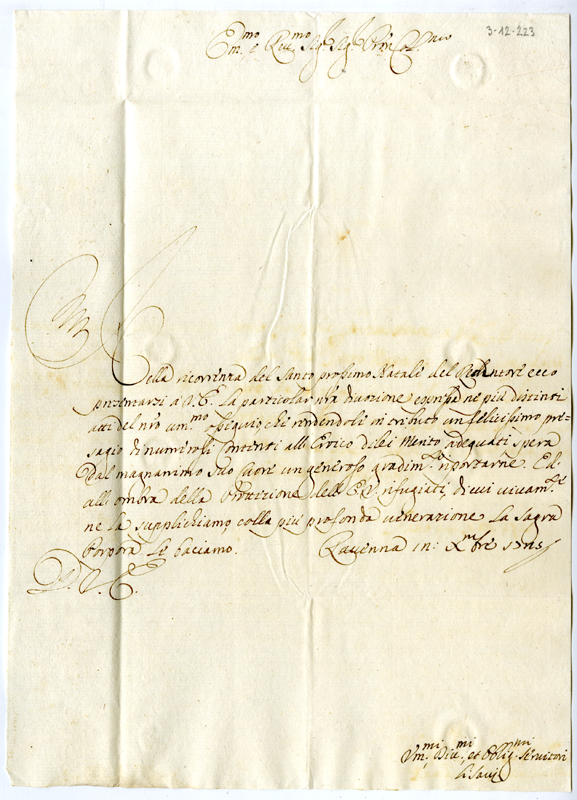 3-12-223
Em.mo e Rev.mo Sig.r Sig.r Pron Col.mo
Nella ricorrenza del Santo prossimo Natale del Redentore ecco
presentarsi a V. E. la particolar nr̃a divozione ne più distinti
atti del nr̃o um.mo ossequio, che rendendoli in tributo un felicissimo pre-
sagio di numerosi Contenti all' Eroico di lei Merito adequati spera
dal magnanimo suo Cuore un generoso gradim.to riportarne. Ed
all' ombra della Protezzione dell' E. V. rifugiati, di cui vivam.te
ne la supplichiamo, colla più profonda venerazione la Sagra
Porpora Le baciamo. Ravenna
D. V. E.
Um.mi Div.mi et Oblig.mi Servitori
Li Savj